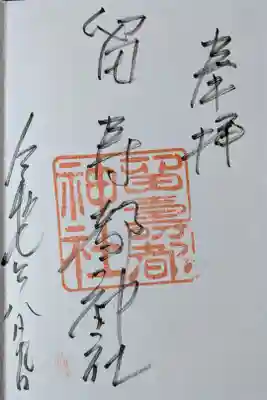 奉拝
留寿都神社
令和 八月 日
留壽都
神社